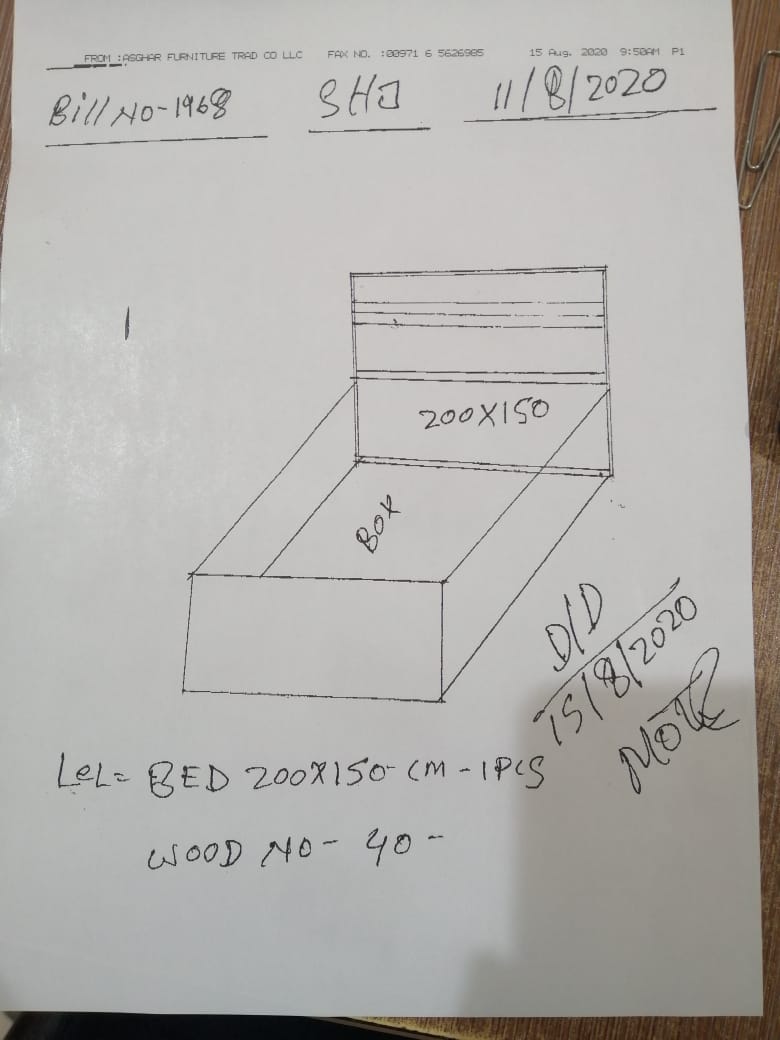 FROM :ASGHAR FURNITURE TRAD CO LLC FAX NO. :00971 6 5626985 15 Aug. 2020 9:50AM P1
Bill NO-1968 SHJ 11/8/2020
200X150
BOX
D/D
15/8/2020
LeL= BED 200X150-CM-1PCS
WOOD NO- 40-